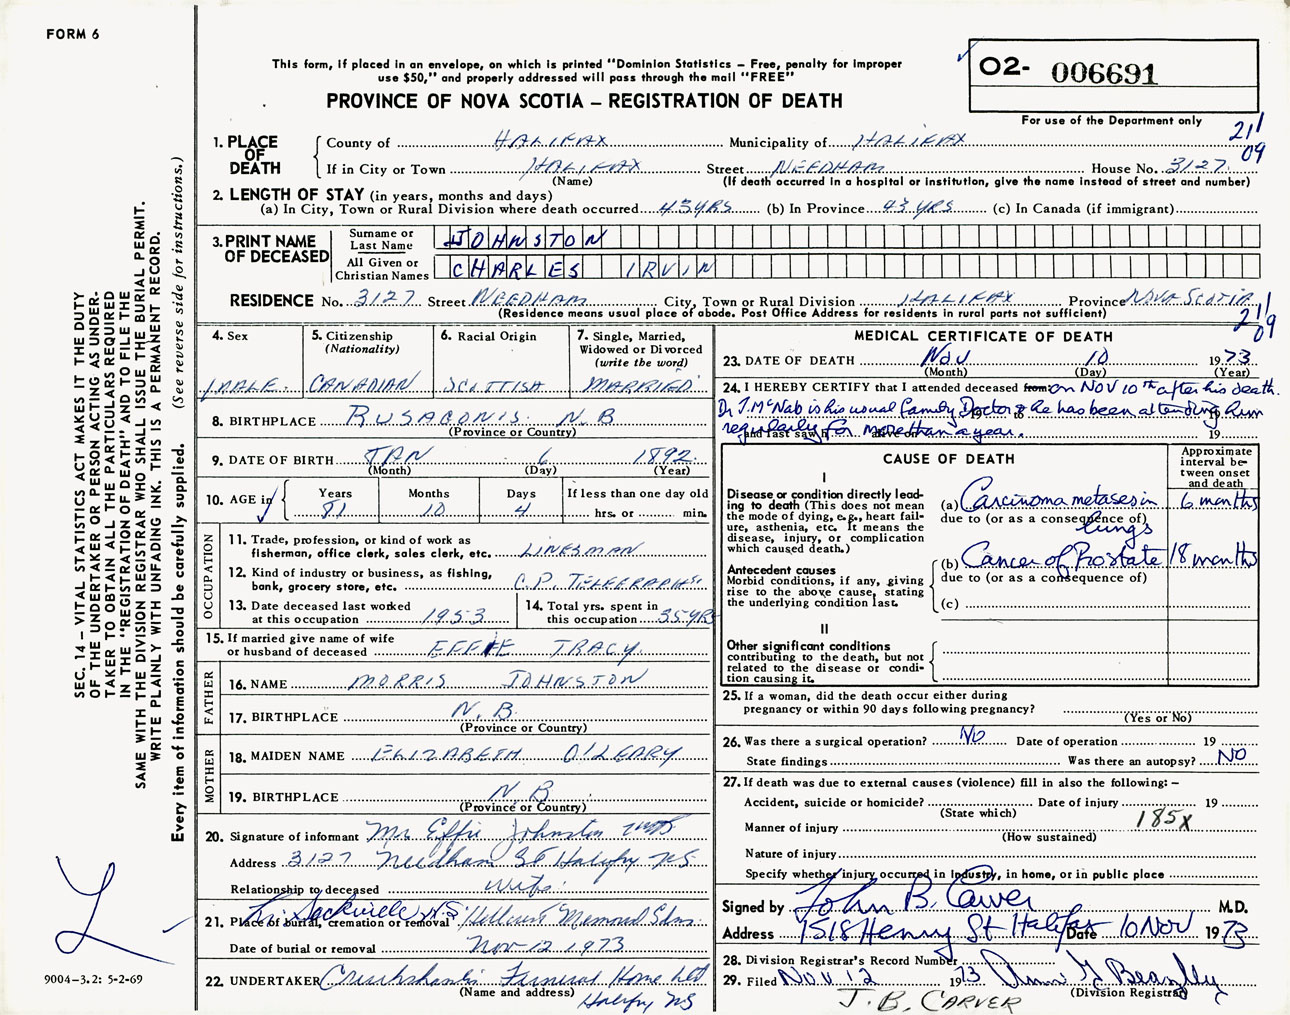 FORM 6
This form, if placed in an envelope, on which is printed "Dominion Statistics – Free, penalty for improper
use $50," and properly addressed will pass through the mail "FREE"
PROVINCE OF NOVA SCOTIA – REGISTRATION OF DEATH
02- 006691
For use of the Department only
21/09
1. PLACE OF DEATH County of HALIFAX Municipality of HALIFAX
If in City or Town HALIFAX Street NEEDHAM House No. 3127
(Name) (If death occurred in a hospital or institution, give the name instead of street and number)
2. LENGTH OF STAY (in years, months and days)
(a) In City, Town or Rural Division where death occurred 43 YRS (b) In Province 43 YRS (c) In Canada (if immigrant)
3. PRINT NAME OF DECEASED Surname or Last Name JOHNSTON
All Given or Christian Names CHARLES IRVIN
RESIDENCE No. 3127 Street NEEDHAM City, Town or Rural Division HALIFAX Province NOVA SCOTIA
(Residence means usual place of abode. Post Office Address for residents in rural parts not sufficient)
21/09
4. Sex MALE
5. Citizenship (Nationality) CANADIAN
6. Racial Origin SCOTTISH
7. Single, Married, Widowed or Divorced (write the word) MARRIED
8. BIRTHPLACE RUSAGONIS N.B
(Province or Country)
9. DATE OF BIRTH JAN 6 1892
(Month) (Day) (Year)
10. AGE in Years 81 Months 10 Days 4 If less than one day old
hrs. or min.
OCCUPATION
11. Trade, profession, or kind of work as
fisherman, office clerk, sales clerk, etc. LINESMAN
12. Kind of industry or business, as fishing,
bank, grocery store, etc. C.P. TELEGRAPHS
13. Date deceased last worked
at this occupation 1953
14. Total yrs. spent in
this occupation 35 YRS
15. If married give name of wife
or husband of deceased EFFIE TRACY
FATHER
16. NAME MORRIS JOHNSTON
17. BIRTHPLACE N.B.
(Province or Country)
MOTHER
18. MAIDEN NAME ELIZABETH O'LEARY
19. BIRTHPLACE N.B.
(Province or Country)
20. Signature of informant Mrs Effie Johnston
Address 3127 Needham St Halifax NS
Relationship to deceased wife
21. Place of burial, cremation or removal Sackville N.S
Date of burial or removal Nov 12 1973
22. UNDERTAKER Cruikshanks Funeral Home Ltd
(Name and address) Halifax NS
MEDICAL CERTIFICATE OF DEATH
23. DATE OF DEATH Nov 10 1973
(Month) (Day) (Year)
24. I HEREBY CERTIFY that I attended deceased from on NOV 10th after his death.
Dr J. McNab is his usual family Doctor & he has been attending him
regularly for more than a year.
and last saw h alive on 19
CAUSE OF DEATH
Approximate interval between onset and death
I
Disease or condition directly lead-
ing to death (This does not mean
the mode of dying, e.g., heart fail-
ure, asthenia, etc. It means the
disease, injury, or complication
which caused death.)
(a) Carcinoma metases in 6 months
due to (or as a consequence of) lungs
Antecedent causes
Morbid conditions, if any, giving
rise to the above cause, stating
the underlying condition last.
(b) Cancer of Prostate 18 months
due to (or as a consequence of)
(c)
II
Other significant conditions
contributing to the death, but not
related to the disease or condi-
tion causing it.
25. If a woman, did the death occur either during
pregnancy or within 90 days following pregnancy?
(Yes or No)
26. Was there a surgical operation? No Date of operation 19
State findings Was there an autopsy? NO
27. If death was due to external causes (violence) fill in also the following: –
Accident, suicide or homicide? Date of injury 19
(State which)
Manner of injury 185X
(How sustained)
Nature of injury
Specify whether injury occurred in Industry, in home, or in public place
Signed by John B. Carver M.D.
Address 1518 Henry St Halifax Date 10 Nov 1973
28. Division Registrar's Record Number
29. Filed Nov 12 1973
(Division Registrar)
J. B. CARVER
SEC. 14 – VITAL STATISTICS ACT MAKES IT THE DUTY
OF THE UNDERTAKER OR PERSON ACTING AS UNDER-
TAKER TO OBTAIN ALL THE PARTICULARS REQUIRED
IN THE "REGISTRATION OF DEATH" AND TO FILE THE
SAME WITH THE DIVISION REGISTRAR WHO SHALL ISSUE THE BURIAL PERMIT.
WRITE PLAINLY WITH UNFADING INK. THIS IS A PERMANENT RECORD.
Every item of information should be carefully supplied. (See reverse side for instructions.)
9004–3.2: 5-2-69